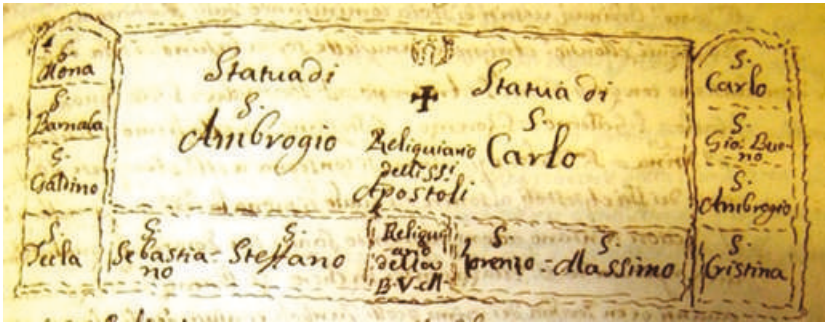 S.
Mona
S.
Barnaba
S.
Galdino
S.
Tecla
Statua di
S.
Ambrogio
Reliquiario
delli SSi
Apostoli
Statua di
S.
Carlo
S.
Sebastia-
no
S.
Steffano
Reliqui
ario
della
B.V.M.
S.
Lorenzo
S.
Massimo
S.
Carlo
S.
Gio: Buo-
no
S.
Ambrogio
S.
Cristina